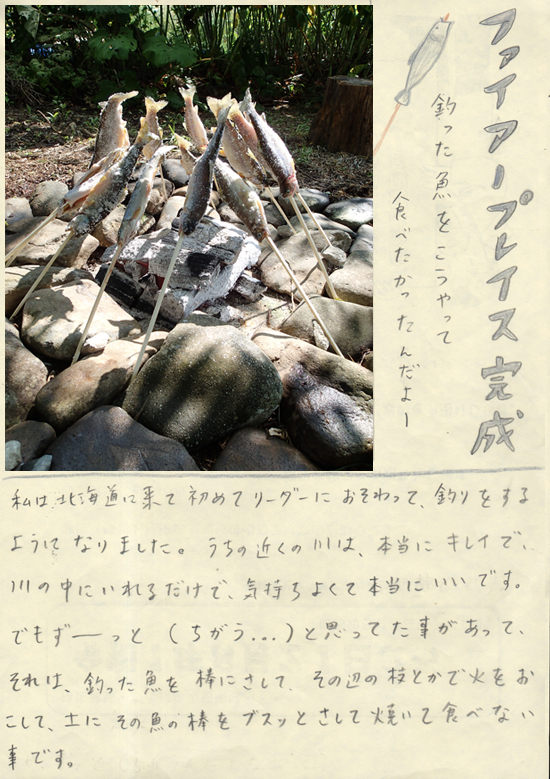 ファイアープレイス完成
釣った魚をこうやって
食べたかったんだよー
私は、北海道に来て初めてリーダーにおそわって、釣りをする
ようになりました。うちの近くの川は、本当にキレイで、
川の中にいれるだけで、気持ちよくて本当にいいです。
でもずーーっと（ちがう...）と思ってた事があって、
それは、釣った魚を棒にさして、その辺の枝とかで火をお
こして、土にその魚の棒をブスッとさして焼いて食べない
事です。